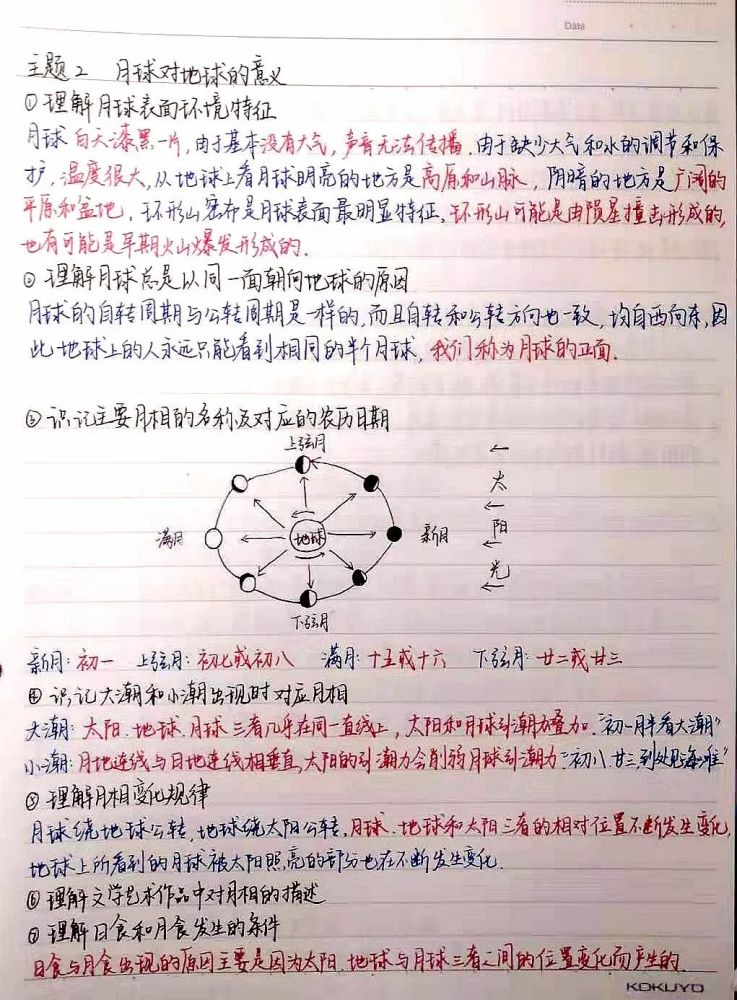 Date
主题2 月球对地球的意义
①理解月球表面环境特征
月球白天漆黑一片,由于基本没有大气,声音无法传播.由于缺少大气和水的调节和保
护,温度很大,从地球上看月球明亮的地方是高原和山脉,阴暗的地方是广阔的
平原和盆地,环形山密布是月球表面最明显特征,环形山可能是由陨星撞击形成的,
也有可能是早期火山爆发形成的.
②理解月球总是以同一面朝向地球的原因
月球的自转周期与公转周期是一样的,而且自转和公转方向也一致,均自西向东,因
此地球上的人永远只能看到相同的半个月球,我们称为月球的正面.
③识记主要月相的名称及对应的农历日期
上弦月
满月 地球 新月
太阳光
下弦月
新月:初一 上弦月:初七或初八 满月:十五或十六 下弦月:廿二或廿三
④识记大潮和小潮出现时对应月相
大潮:太阳.地球.月球三者几乎在同一直线上,太阳和月球引潮力叠加."初一月半看大潮"
小潮:月地连线与日地连线相垂直,太阳的引潮力会削弱月球引潮力"初八.廿三到处见海滩"
⑤理解月相变化规律
月球绕地球公转,地球绕太阳公转,月球.地球和太阳三者的相对位置不断发生变化,
地球上所看到的月球被太阳照亮的部分也在不断发生变化.
⑥理解文学艺术作品中对月相的描述
⑦理解日食和月食发生的条件
日食与月食出现的原因主要是因为太阳.地球与月球三者之间的位置变化而产生的.
KOKUYO